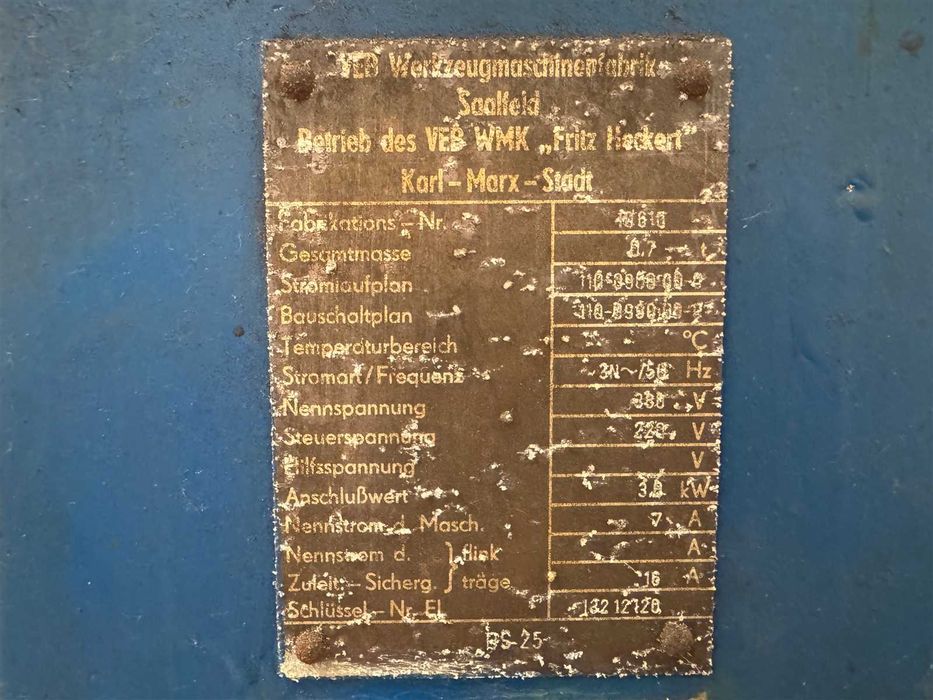 VEB Werkzeugmaschinenfabrik
Saalfeld
Betrieb des VEB WMK „Fritz Heckert"
Karl-Marx-Stadt
Fabrikations-Nr.
Gesamtmasse t
Stromlaufplan
Bauschaltplan
Temperaturbereich °C
Stromart/Frequenz 3N~/50 Hz
Nennspannung 380 V
Steuerspannung 220 V
Hilfsspannung V
Anschlußwert kW
Nennstrom d. Masch. 7 A
Nennstrom d. } flink A
Zuleit.-Sicherg. } träge 16 A
Schlüssel-Nr. El. 132 12720